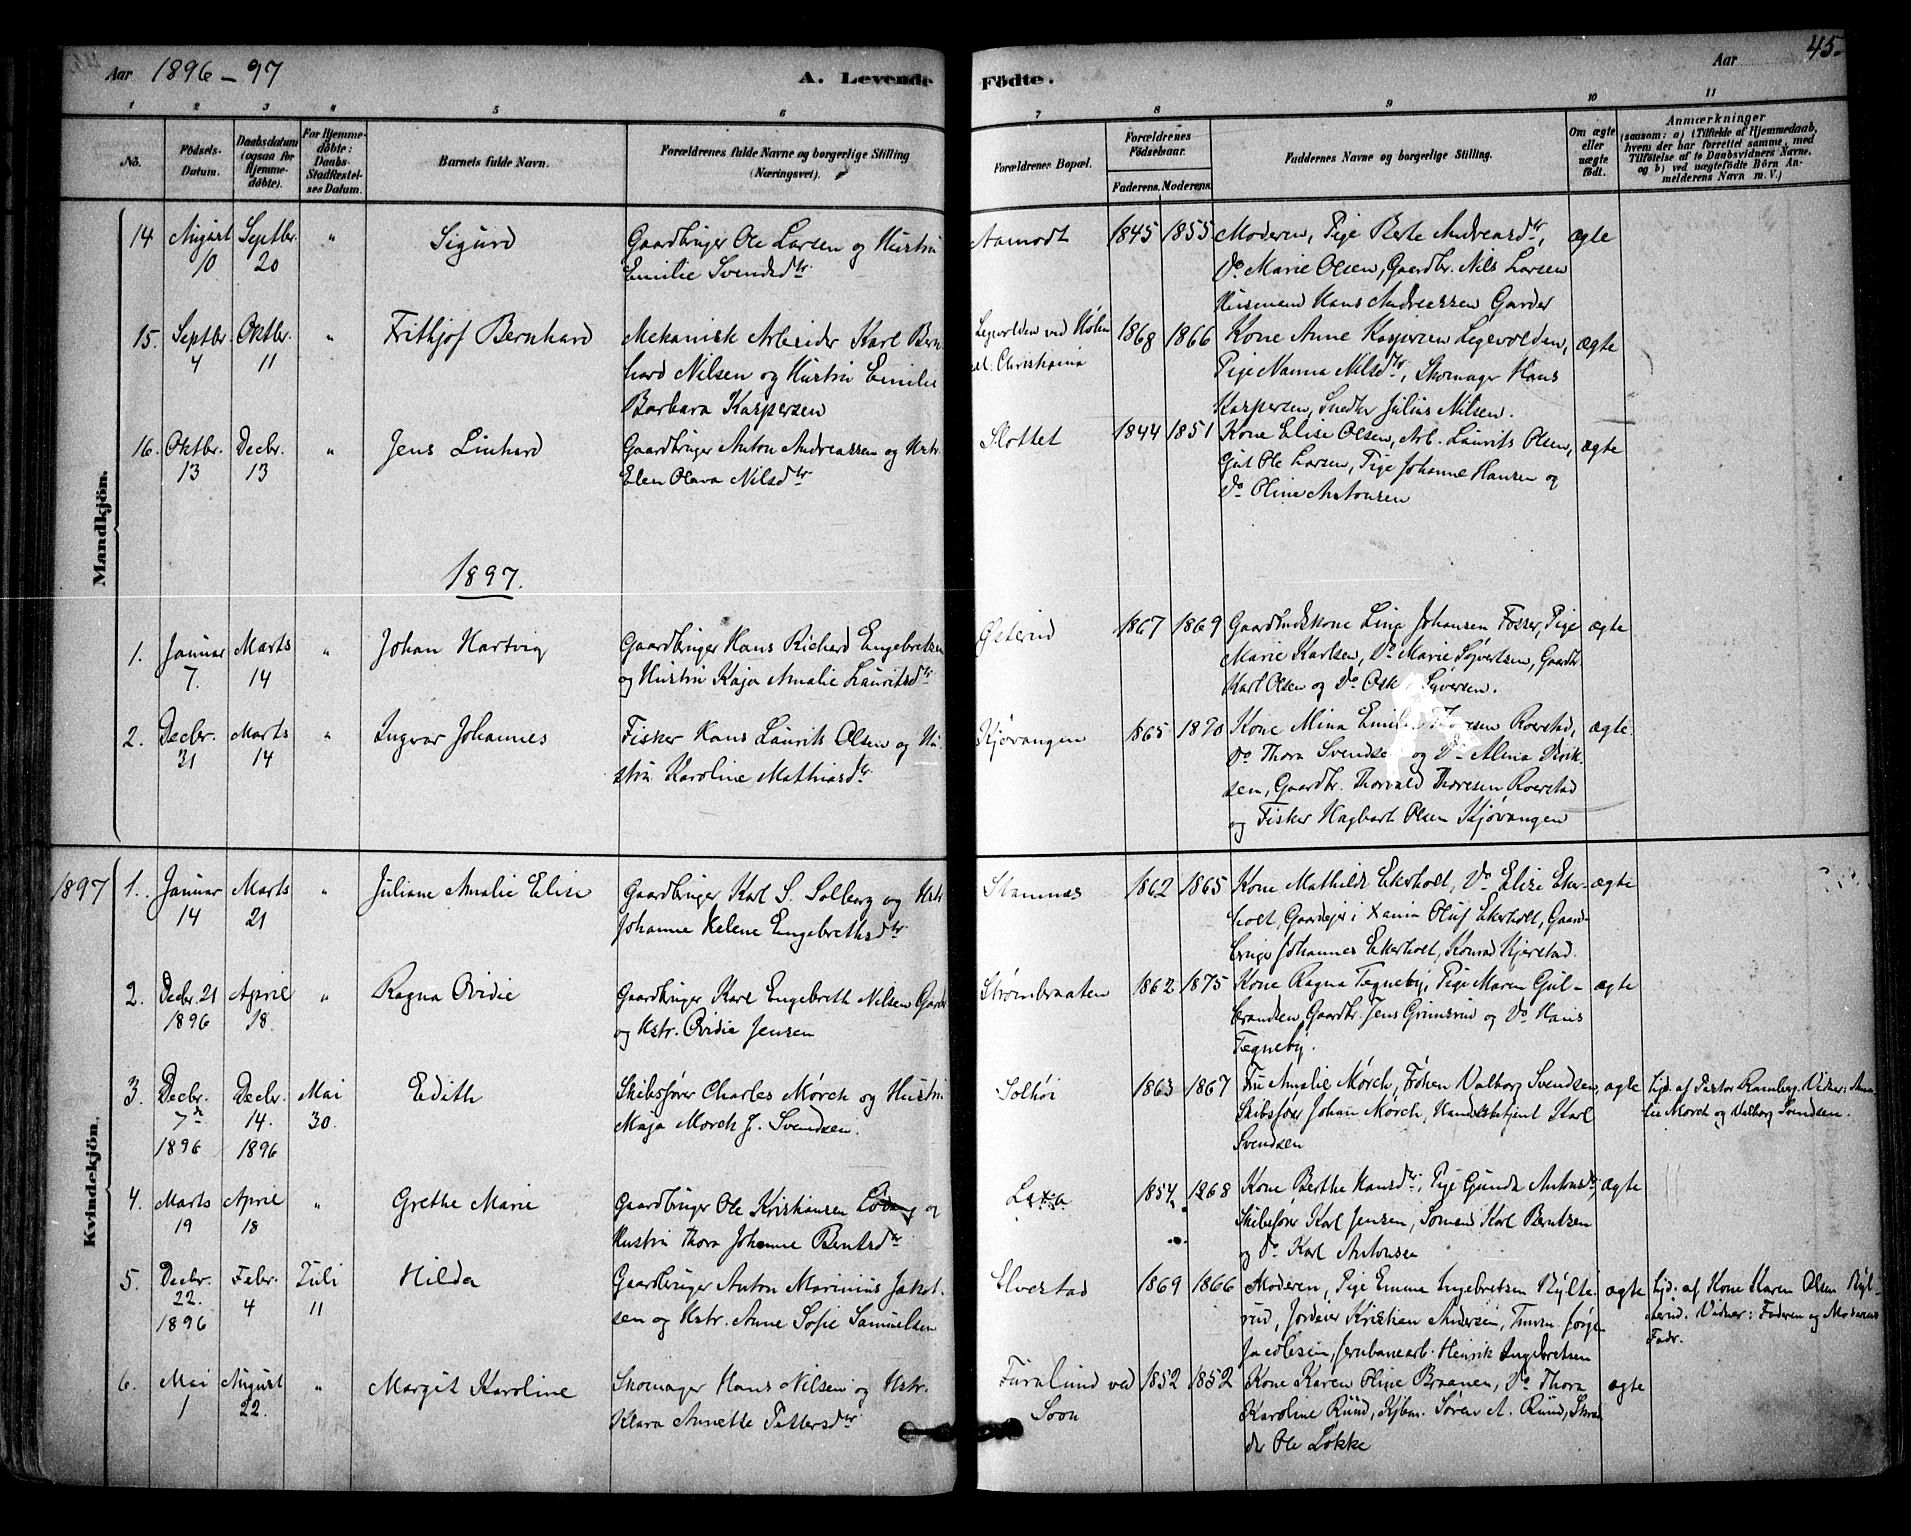 Aar 1896-97
A. Levende
Födte.
Aar
45.
1 2 3 4 5 6 7 8 9 10 11
No.
Födsels-Datum.
Daabsdatum (ogsaa for Hjemmedöbte).
For Hjemmedöbte: Daabs-Stadfæstelses Datum.
Barnets fulde Navn.
Forældrenes fulde Navne og borgerlige Stilling (Næringsvei).
Forældrenes Bopæl.
Forældrenes Födselsaar.
Faderens. Moderens.
Faddernes Navne og borgerlige Stilling.
Om ægte eller uægte födt.
Anmærkninger
(saasom: a) i Tilfælde af Hjemmedaab, hvem der har forrettet samme, med Tilföielse af to Daabsvidners Navne. og b) ved uægtefödte Börn Anmelderens Navn m. V.)
Mandkjön.
14 August 10 Septbr. 20 " Sigurd
Gaardbruger Ole Larsen og Hustru
Emilie Svendsdtr.
Aamodt 1845 1855
Moderen, Pige Berte Andreasdtr,
Do Marie Olsen, Gaardbr. Nils Larsen
Husmand Hans Andreassen Garder
ægte
15. Septbr. 4 Oktbr. 11 " Frithjof Bernhard
Mekanisk Arbeider Karl Bern
hard Nilsen og Hustru Emilie
Barbara Kaspersen
Legevolden ved Hølen
Christiania
1868 1866
Kone Anne Kaspersen Legevolden,
Pige Nanna Nilsdtr, Skomager Hans
Kaspersen, Snedker Julius Nilsen.
ægte
16. Oktbr. 13 Decbr. 13 " Jens Linhard
Gaardbruger Anton Andreassen og Hstr.
Elen Olava Nilsdtr
Slottet 1844 1851
Kone Elise Olsen, Arb. Laurits Olsen,
Gut Ole Larsen, Pige Johanne Hansen og
Do Oline Antonsen
ægte
1897.
1. Januar 7. Marts 14 " Johan Hartvig
Gaardbruger Hans Richard Engebretsen
og Hustru Kaja Amalie Lauritsdtr
Østerud 1867 1869
Johansen Fosser, Pige
Marie Karlsen, Do Marie Syvertsen, Gaardbr.
Karl Olsen og Do Syversen.
ægte
2. Decbr. 31 Marts 14 " Ingvar Johannes
Fisker Hans Laurits Olsen og Hu-
stru Karoline Mathiasdtr.
Kjøvangen 1865 1870
Kone Mina Roerstad,
Do Thora Svendsen og Do Alma
sen, Gaardbr. Thorvald Thoresen Roerstad
og Fisker Hagbart Olsen Kjøvangen
ægte.
Kvindekjön.
1897
1. Januar 14 Marts 21 " Juliane Amalie Elise
Gaardbruger Karl S. Solberg og Hstr
Johanne Helene Engebrethsdtr
Stamnæs 1862 1865
Kone Mathilde Ekerholt, Do Elise Eker-
holt, Gaardejer i Xania Oluf Ekerholt, Gaard-
bruger Johannes Ekerholt, Konrad Kjerstad.
ægte
2. Decbr. 21 1896 April 18. " Ragna Ovidie
Gaardbruger Karl Engebreth Nilsen Garder
og Hstr. Ovidie Jensen
Strømbraaten 1862 1875
Kone Ragna Tegneby, Pige Maren Gul-
brandsen, Gaardbr. Jens Grimsrud og Do Hans
Tegneby.
ægte
3. Decbr. 7de 1896 Decbr. 14. 1896 Mai 30. Edith
Skibsfører Charles Mørch og Hustru
Maja Mørch f. Svendsen.
Solhöi 1863 1867
Fru Amalie Mörch, Fröken Valborg Svendsen,
Skibsfører Johan Mörch, Handelsbetjent Karl
Svendsen
ægte
Hjd. af Pastor Ramberg. Vidner: Ama-
lie Mörch og Valborg Svendsen.
4. Marts 19 April 18 " Grethe Marie
Gaardbruger Ole Kristiansen og
Hustru Thora Johanne Berntsdtr
1854 1868
Kone Berthe Hansdtr, Pige Gunda Antonsd,
Skibsfører Karl Jensen, Sømand Karl Berntsen
og Do Karl Antonsen
ægte
5. Decbr. 22. 1896 Febr. 4 Juli 11 Hilda
Gaardbruger Anton Marinius Jakob-
sen og Hstr. Anne Sofie Samuelsen
Elvestad 1869 1866
Moderen, Pige Emma Ingebretsen Bylte-
rud, Jordeier Kristian Andersen, Tømm. Jørgen
Jacobsen, Jernbanearb. Henrik Ingebretsen
ægte
Hjd. af Kone Karen Olsen Byl-
terud. Vidner: Faderen og Moderens
Fader.
6. Mai 1 August 22. " Margit Karoline
Skomager Hans Nilsen og Hstr.
Klara Annette Pettersdtr
Furulund ved
Soon
1852 1852
Kone Karen Oline Braanen, Do Thora
Karoline Ruud, Kjbm. Søren A. Ruud, Skræd
der Ole Løkke
ægte